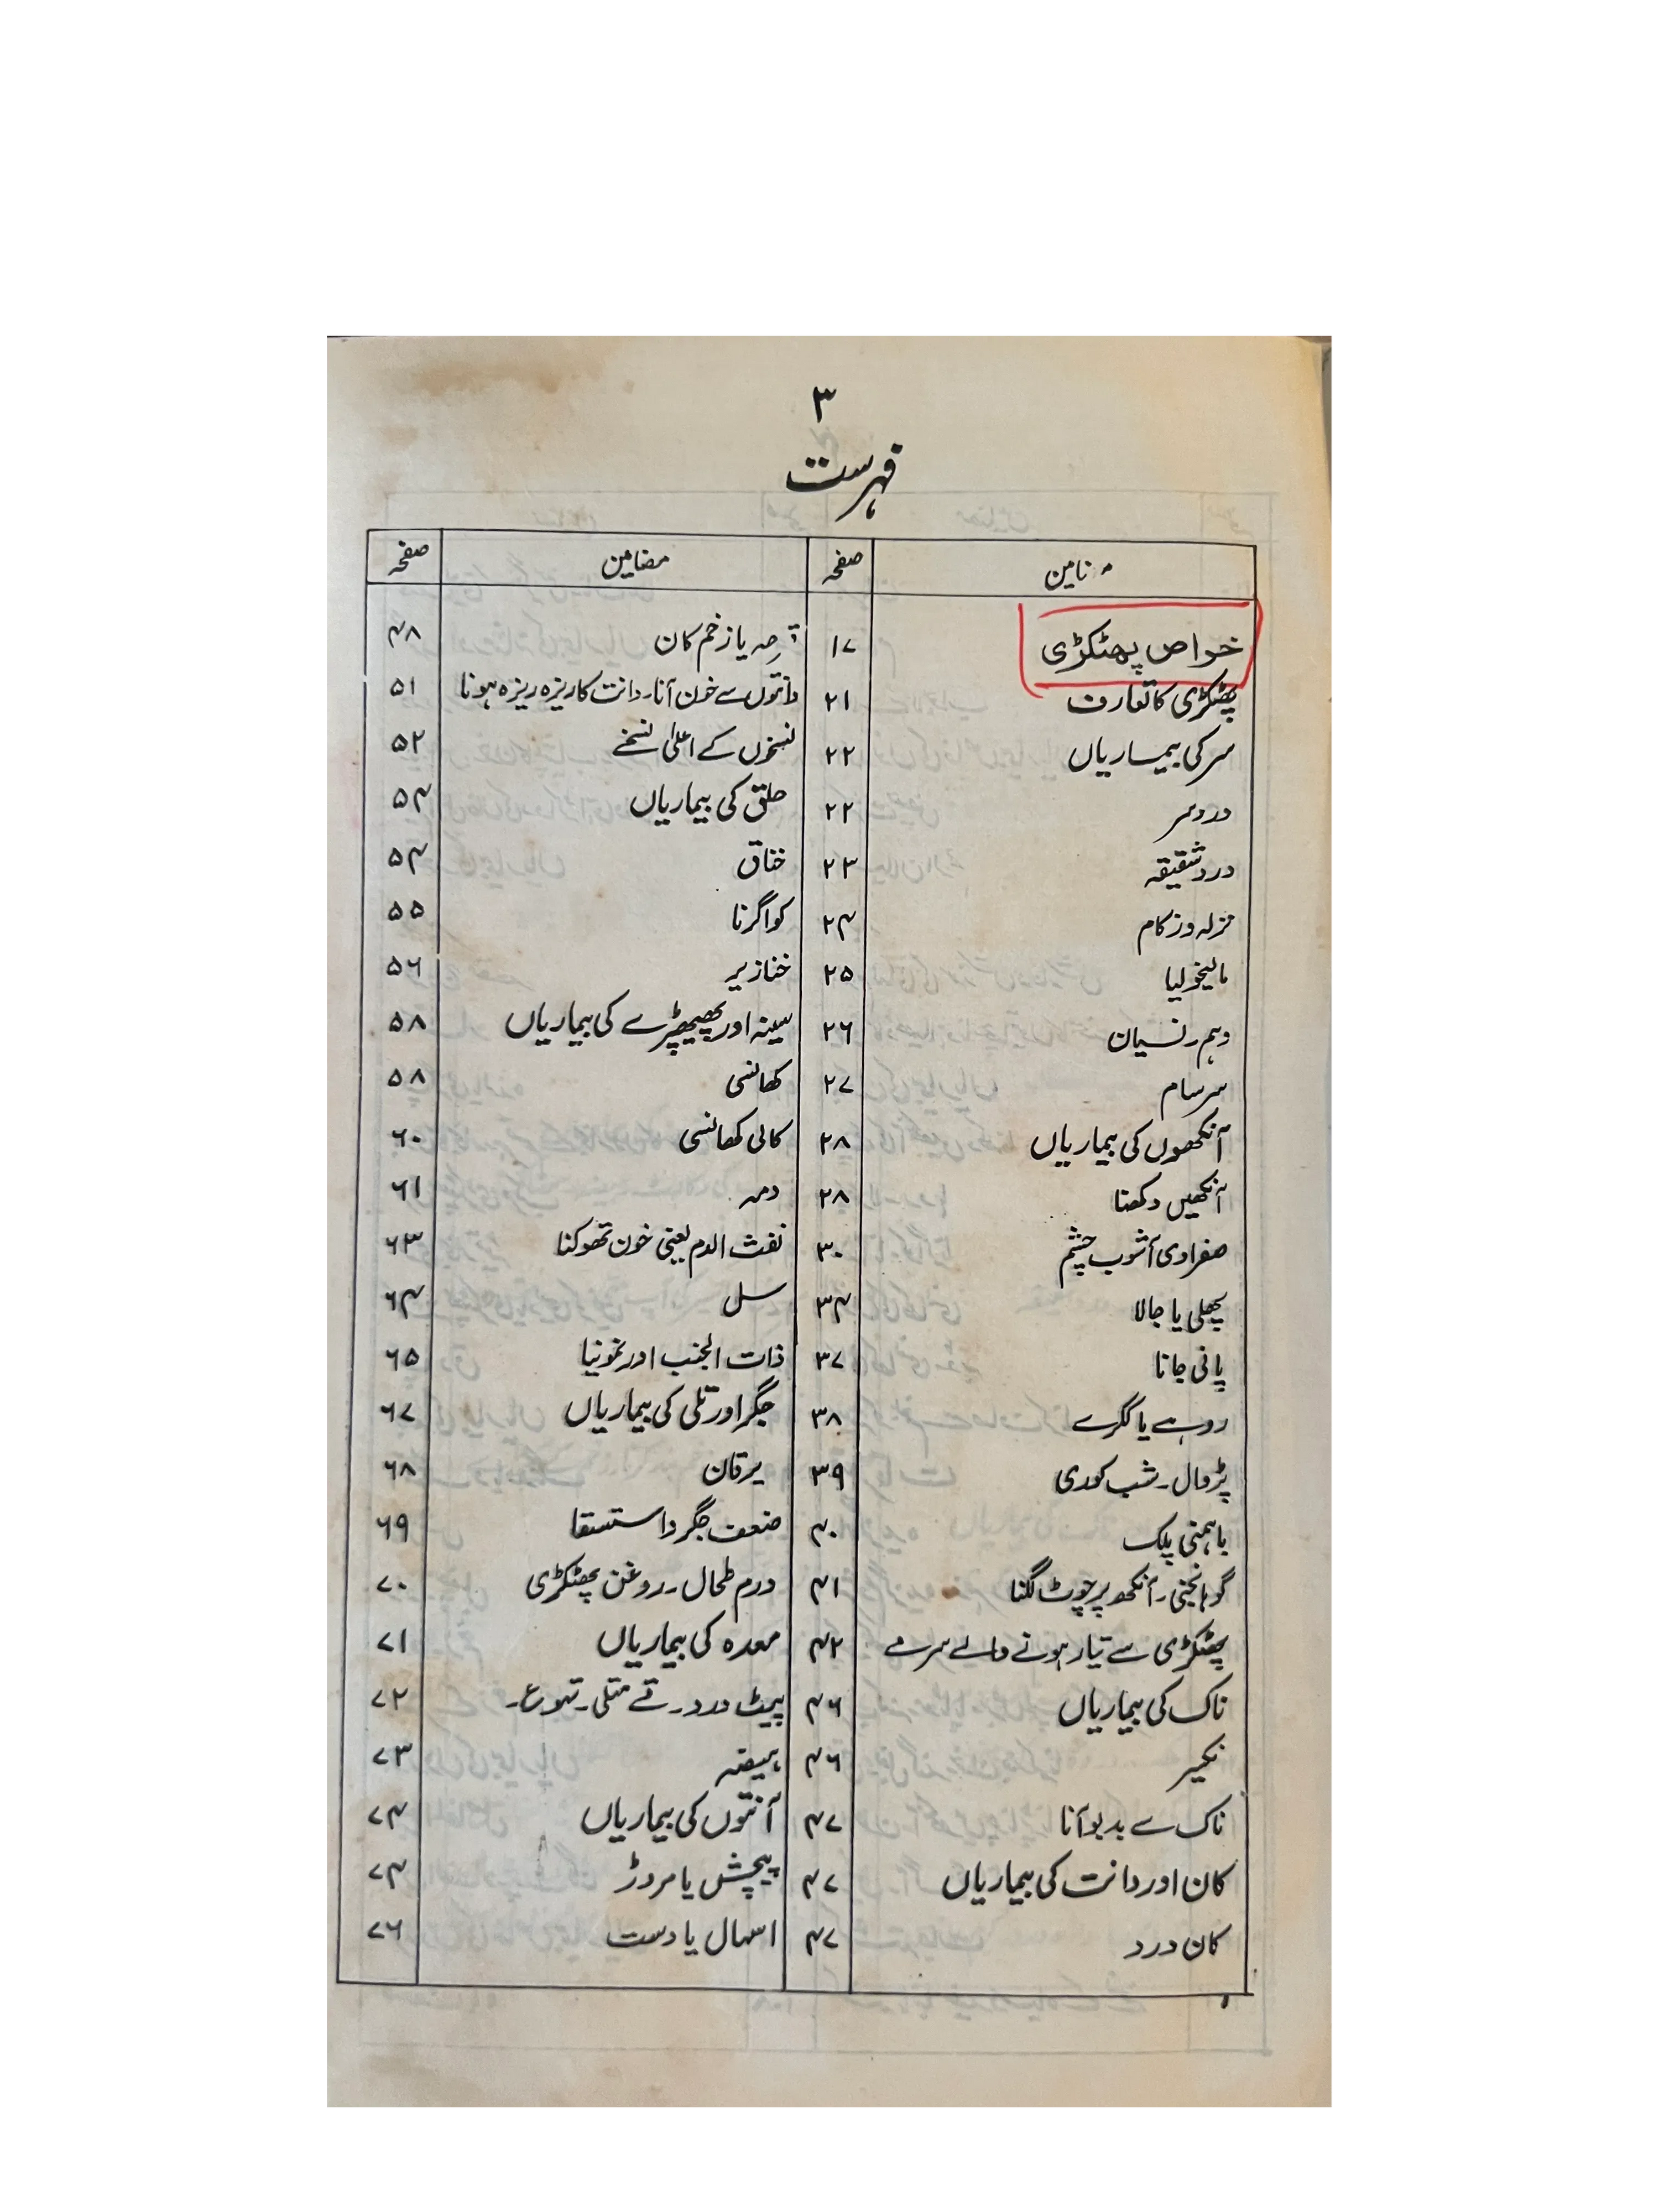 ۳
فہرست
مضامین صفحہ مضامین صفحہ
خواص پھٹکڑی ۱۷ یا زخم کان ۴۸
پھٹکڑی کا تعارف ۲۱ دانتوں سے خون آنا۔ دانت کا ریزہ ریزہ ہونا ۵۱
سر کی بیماریاں ۲۲ نسخوں کے اعلیٰ نسخے ۵۲
درد سر ۲۲ حلق کی بیماریاں ۵۴
درد شقیقہ ۲۳ خناق ۵۴
نزلہ و زکام ۲۴ کوا گرنا ۵۵
مالیخولیا ۲۵ خنازیر ۵۶
وہم۔ نسیان ۲۶ سینہ اور پھیپھڑے کی بیماریاں ۵۸
سرسام ۲۷ کھانسی ۵۸
آنکھوں کی بیماریاں ۲۸ کالی کھانسی ۶۰
آنکھیں دکھنا ۲۸ دمہ ۶۱
صفراوی آشوب چشم ۳۰ نفث الدم یعنی خون تھوکنا ۶۳
پھلی یا جالا ۳۴ سل ۶۴
پانی جانا ۳۷ ذات الجنب اور نمونیا ۶۵
روہے یا ککرے ۳۸ جگر اور تلی کی بیماریاں ۶۷
پڑوال۔ شب کوری ۳۹ یرقان ۶۸
باہمنی پلک ۴۰ ضعف جگر و استسقا ۶۹
گوہانجنی۔ آنکھ پر چوٹ لگنا ۴۱ ورم طحال۔ روغن پھٹکڑی ۷۰
پھٹکڑی سے تیار ہونے والے سرمے ۴۲ معدہ کی بیماریاں ۷۱
ناک کی بیماریاں ۴۶ پیٹ درد۔ قے متلی۔ تہوع۔ ۷۲
نکسیر ۴۶ ہیضہ ۷۳
ناک سے بدبو آنا ۴۷ آنتوں کی بیماریاں ۷۴
کان اور دانت کی بیماریاں ۴۷ پیچش یا مروڑ ۷۴
کان درد ۴۷ اسہال یا دست ۷۶